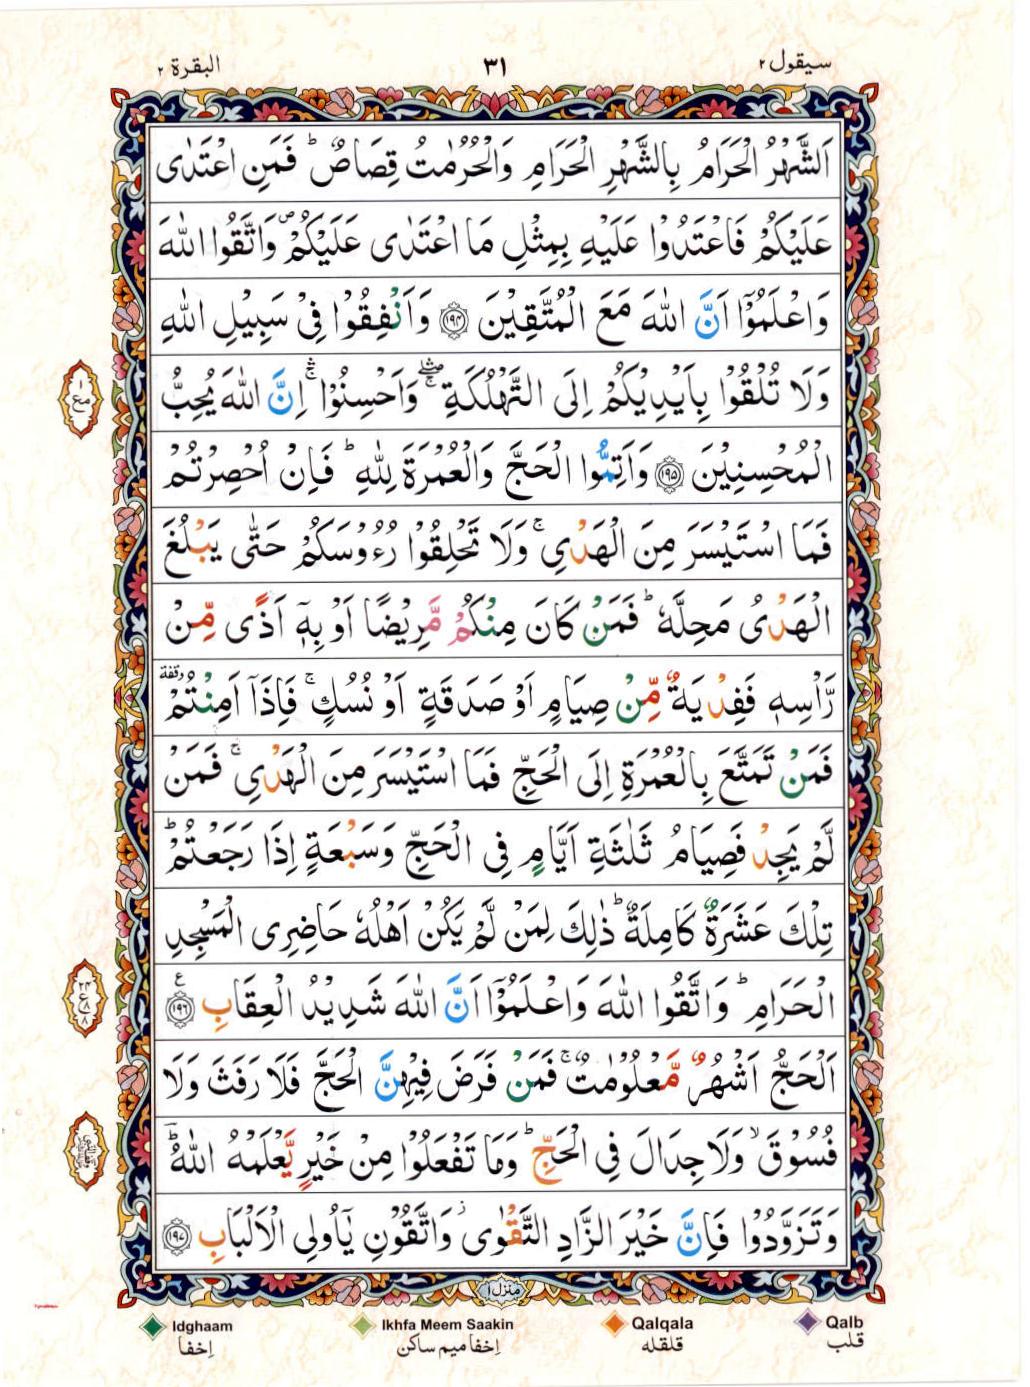 سيقول ٢
٣١
البقرة ٢
اَلشَّهْرُ الْحَرَامُ بِالشَّهْرِ الْحَرَامِ وَالْحُرُمٰتُ قِصَاصٌ ؕ فَمَنِ اعْتَدٰى
عَلَيْكُمْ فَاعْتَدُوْا عَلَيْهِ بِمِثْلِ مَا اعْتَدٰى عَلَيْكُمْ ۪ وَاتَّقُوا اللّٰهَ
وَاعْلَمُوْۤا اَنَّ اللّٰهَ مَعَ الْمُتَّقِيْنَ ﴿۱۹۴﴾ وَاَنْفِقُوْا فِىْ سَبِيْلِ اللّٰهِ
وَلَا تُلْقُوْا بِاَيْدِيْكُمْ اِلَى التَّهْلُكَةِ ۖۛۚ وَاَحْسِنُوْا ۛۚ اِنَّ اللّٰهَ يُحِبُّ
الْمُحْسِنِيْنَ ﴿۱۹۵﴾ وَاَتِمُّوا الْحَجَّ وَالْعُمْرَةَ لِلّٰهِ ؕ فَاِنْ اُحْصِرْتُمْ
فَمَا اسْتَيْسَرَ مِنَ الْهَدْىِ ۚ وَلَا تَحْلِقُوْا رُءُوْسَكُمْ حَتّٰى يَبْلُغَ
الْهَدْىُ مَحِلَّهٗ ؕ فَمَنْ كَانَ مِنْكُمْ مَّرِيْضًا اَوْ بِهٖۤ اَذًى مِّنْ
رَّاْسِهٖ فَفِدْيَةٌ مِّنْ صِيَامٍ اَوْ صَدَقَةٍ اَوْ نُسُكٍ ۚ فَاِذَاۤ اَمِنْتُمْ وقفة
فَمَنْ تَمَتَّعَ بِالْعُمْرَةِ اِلَى الْحَجِّ فَمَا اسْتَيْسَرَ مِنَ الْهَدْىِ ۚ فَمَنْ
لَّمْ يَجِدْ فَصِيَامُ ثَلٰثَةِ اَيَّامٍ فِى الْحَجِّ وَسَبْعَةٍ اِذَا رَجَعْتُمْ ؕ
تِلْكَ عَشَرَةٌ كَامِلَةٌ ؕ ذٰلِكَ لِمَنْ لَّمْ يَكُنْ اَهْلُهٗ حَاضِرِى الْمَسْجِدِ
الْحَرَامِ ؕ وَاتَّقُوا اللّٰهَ وَاعْلَمُوْۤا اَنَّ اللّٰهَ شَدِيْدُ الْعِقَابِ ﴿۱۹۶﴾ ع
اَلْحَجُّ اَشْهُرٌ مَّعْلُوْمٰتٌ ۚ فَمَنْ فَرَضَ فِيْهِنَّ الْحَجَّ فَلَا رَفَثَ وَلَا
فُسُوْقَ ۙ وَلَا جِدَالَ فِى الْحَجِّ ؕ وَمَا تَفْعَلُوْا مِنْ خَيْرٍ يَّعْلَمْهُ اللّٰهُ ؕ
وَتَزَوَّدُوْا فَاِنَّ خَيْرَ الزَّادِ التَّقْوٰى ۫ وَاتَّقُوْنِ يٰۤاُولِى الْاَلْبَابِ ﴿۱۹۷﴾
منزل ١
Idghaam
Ikhfa Meem Saakin
Qalqala
Qalb
اِخفا
اِخفا ميم ساكن
قلقله
قلب